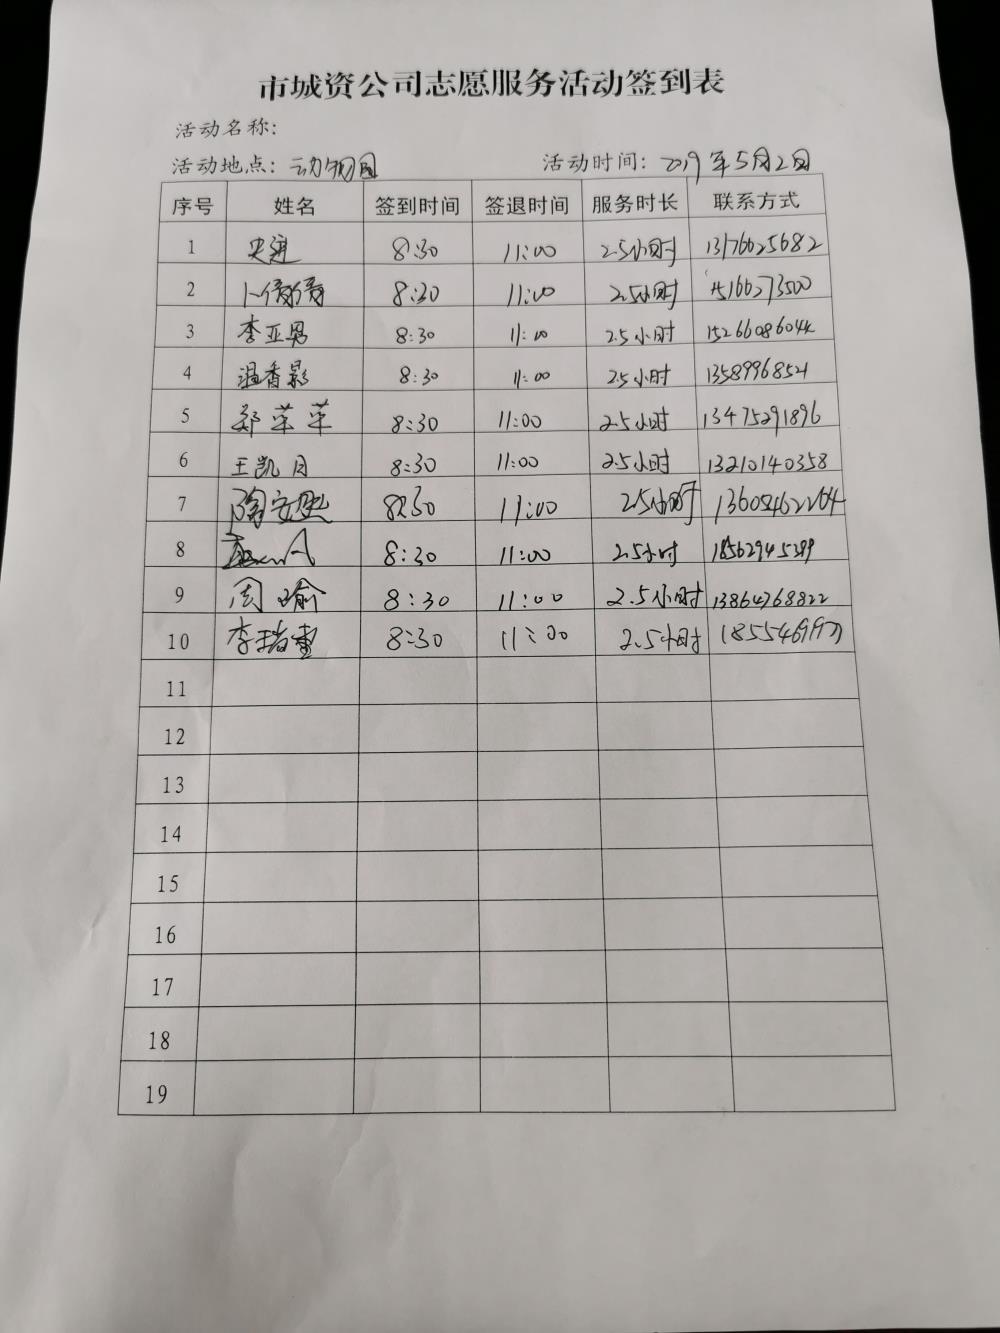 市城资公司志愿服务活动签到表
活动名称:
活动地点: 动物园 活动时间: 2019年5月2日
序号 姓名 签到时间 签退时间 服务时长 联系方式
1 8:30 11:00 2.5小时 13176625682
2 卜倩倩 8:30 11:00 2.5小时 15166273500
3 李亚男 8:30 11:00 2.5小时 15266086044
4 温香彩 8:30 11:00 2.5小时 13589968521
5 郑苹苹 8:30 11:00 2.5小时 13475291896
6 王凯月 8:30 11:00 2.5小时 13210140358
7 8:30 11:00 2.5小时
8 8:30 11:00 2.5小时
9 周瑜 8:30 11:00 2.5小时 13864768822
10 8:30 11:00 2.5小时
11
12
13
14
15
16
17
18
19